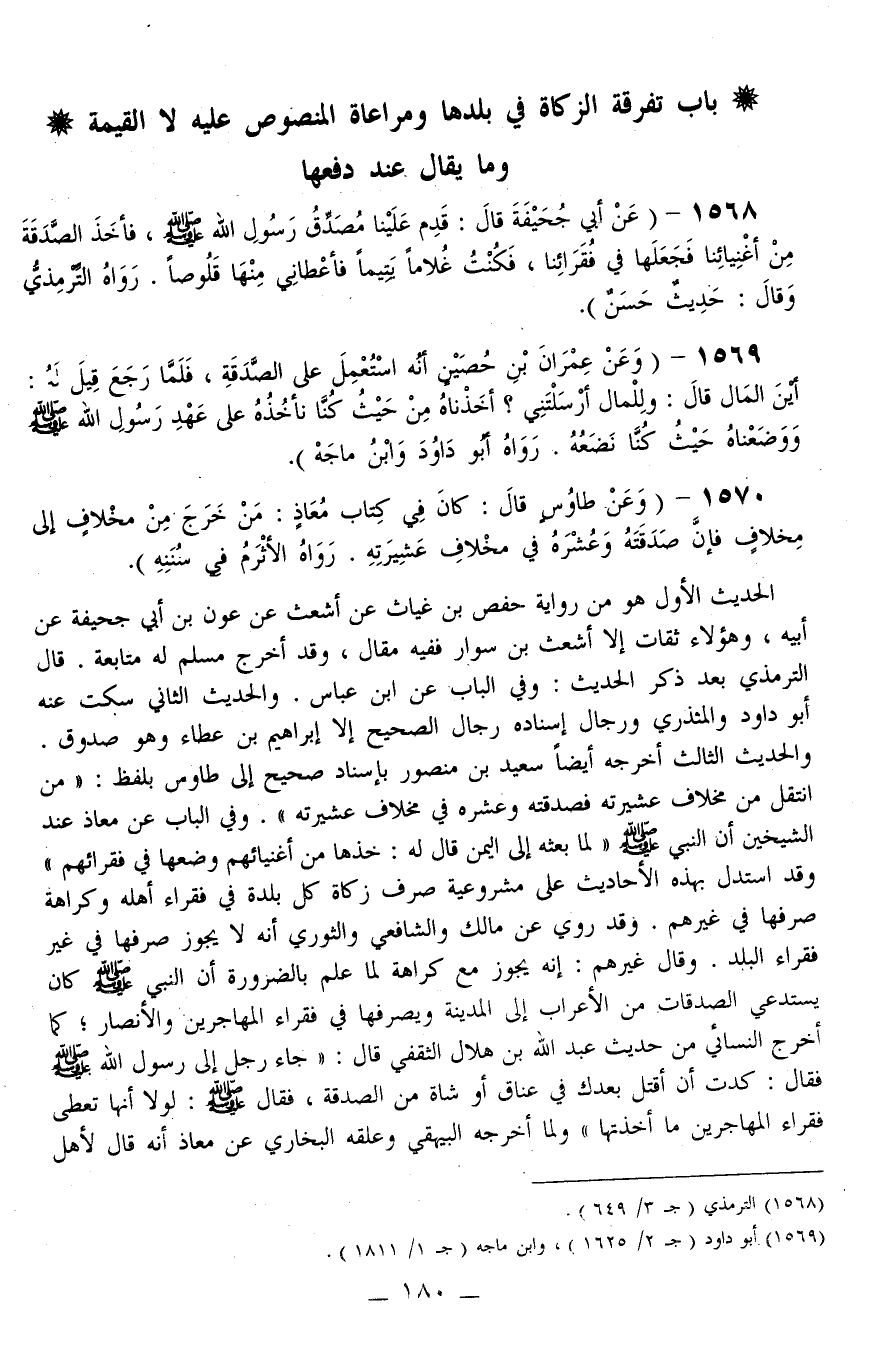 ❋ باب تفرقة الزكاة في بلدها ومراعاة المنصوص عليه لا القيمة ❋
وما يقال عند دفعها
١٥٦٨ – ( عَنْ أبي جُحَيْفَةَ قالَ : قَدِم عَلَيْنا مُصَدِّقُ رَسُولِ الله ﷺ ، فأخَذَ الصَّدَقَةَ
مِنْ أغْنِيائِنا فَجَعَلَها في فُقَرَائِنا ، فَكُنْتُ غُلاماً يَتِيماً فأعْطانِي مِنْهَا قَلُوصاً . رَوَاهُ التِّرْمِذيُّ
وَقالَ : حَدِيثٌ حَسَنٌ ).
١٥٦٩ – ( وَعَنْ عِمْرَانَ بْنِ حُصَيْنٍ أنَّه اسْتُعْمِلَ على الصَّدَقَةِ ، فَلَمَّا رَجَعَ قِيلَ لَهُ :
أيْنَ المَال قالَ : ولِلْمال أرْسَلْتَنِي ؟ أخَذْناهُ مِنْ حَيْثُ كُنَّا نأخُذُهُ على عَهْدِ رَسُولِ الله ﷺ
وَوَضَعْناهُ حَيْثُ كُنَّا نَضَعُهُ . رَوَاهُ أبُو دَاوُدَ وَابْنُ ماجَهْ ).
١٥٧٠ – ( وَعَنْ طاوُسٍ قالَ : كانَ فِي كِتاب مُعَاذٍ : مَنْ خَرَجَ مِنْ مخْلافٍ إلى
مِخلافٍ فإنَّ صَدَقَتَهُ وَعُشْرَهُ في مخْلافِ عَشِيرَتِهِ . رَوَاهُ الأثْرَمُ فِي سُنَنِهِ ).
الحديث الأول هو من رواية حفص بن غياث عن أشعث عن عون بن أبي جحيفة عن
أبيه ، وهؤلاء ثقات إلا أشعث بن سوار ففيه مقال ، وقد أخرج مسلم له متابعة . قال
الترمذي بعد ذكر الحديث : وفي الباب عن ابن عباس . والحديث الثاني سكت عنه
أبو داود والمنذري ورجال إسناده رجال الصحيح إلا إبراهيم بن عطاء وهو صدوق .
والحديث الثالث أخرجه أيضاً سعيد بن منصور بإسناد صحيح إلى طاوس بلفظ : « من
انتقل من مخلاف عشيرته فصدقته وعشره في مخلاف عشيرته » . وفي الباب عن معاذ عند
الشيخين أن النبي ﷺ « لما بعثه إلى اليمن قال له : خذها من أغنيائهم وضعها في فقرائهم »
وقد استدل بهذه الأحاديث على مشروعية صرف زكاة كل بلدة في فقراء أهله وكراهة
صرفها في غيرهم . وقد روي عن مالك والشافعي والثوري أنه لا يجوز صرفها في غير
فقراء البلد . وقال غيرهم : إنه يجوز مع كراهة لما علم بالضرورة أن النبي ﷺ كان
يستدعي الصدقات من الأعراب إلى المدينة ويصرفها في فقراء المهاجرين والأنصار ؛ كما
أخرج النسائي من حديث عبد الله بن هلال الثقفي قال : « جاء رجل إلى رسول الله ﷺ
فقال : كدت أن أقتل بعدك في عناق أو شاة من الصدقة ، فقال ﷺ : لولا أنها تعطى
فقراء المهاجرين ما أخذتها » ولما أخرجه البيهقي وعلقه البخاري عن معاذ أنه قال لأهل
(١٥٦٨) الترمذي ( جـ ٣/ ٦٤٩ ) .
(١٥٦٩) أبو داود ( جـ ٢/ ١٦٢٥ ) ، وابن ماجه ( جـ ١/ ١٨١١ ) .
– ١٨٠ –